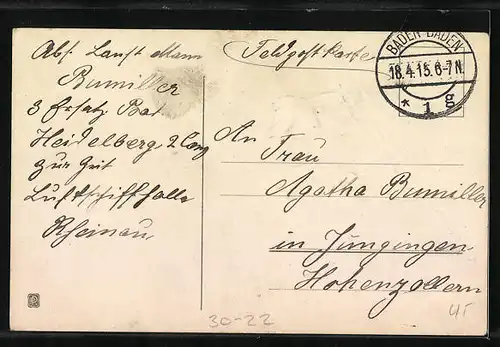 Abs. Landst. Mann
Bumiller
3 Ersatz Bat.
Heidelberg 2 Comp
zur Zeit
Luftschiffhalle
Rheinau
Feldpostkarte
BADEN-BADEN
18.4.15.6-7N.
* 1 g
An
Frau
Agatha Bumiller
in Jungingen
Hohenzollern
30-22